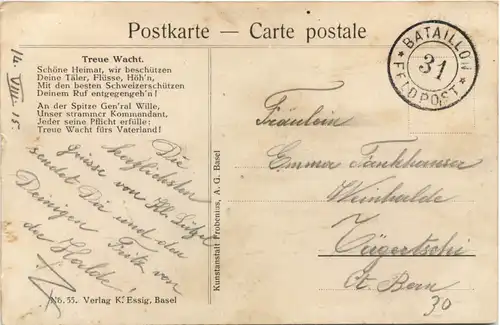 Postkarte — Carte postale
14. VIII. 15.
Treue Wacht.
Schöne Heimat, wir beschützen
Deine Täler, Flüsse, Höh'n,
Mit den besten Schweizerschützen
Deinem Ruf entgegengeh'n!
An der Spitze Gen'ral Wille,
Unser strammer Kommandant,
Jeder seine Pflicht erfülle:
Treue Wacht fürs Vaterland!
Die
herzlichsten
Grüsse von Kl. Lützel
sendet Dir und den
Deinigen Fritz von
der Halde!
No. 55. Verlag K. Essig, Basel
Kunstanstalt Frobenius, A. G. Basel
* BATAILLON *
31
FELDPOST
Fräulein
Emma Fankhauser
Weinhalde
Tägertschi
Ct. Bern
30